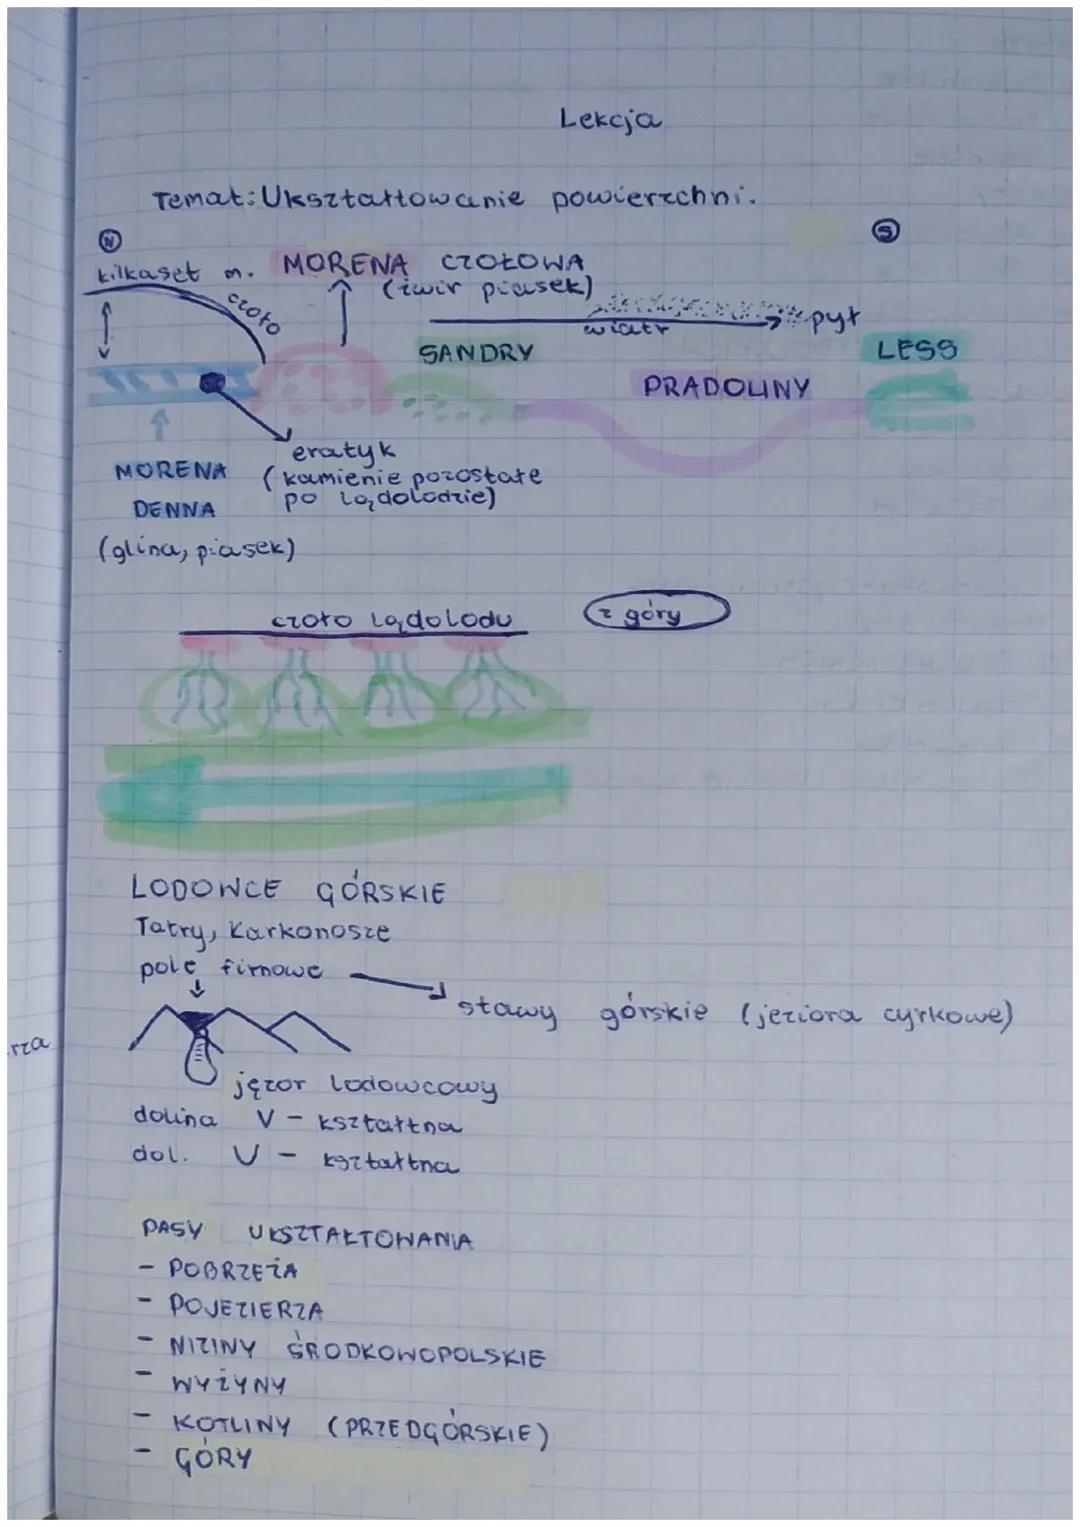 Lekcja
Temat: Ukształtowanie powierzchni.
N
S
kilkaset m.
czoło
MORENA CZOŁOWA
(żwir piasek)
wiatr
pył
SANDRY
PRADOLINY
LESS
eratyk
(kamienie pozostałe
po lądolodzie)
MORENA
DENNA
(glina, piasek)
czoło lądolodu
z góry
LODOWCE GÓRSKIE
Tatry, Karkonosze
pole firnowe
stawy górskie (jeziora cyrkowe)
rza
jęzor lodowcowy
dolina V - kształtna
dol. U - kształtna
PASY UKSZTAŁTOWANIA
- POBRZEŻA
- POJEZIERZA
- NIZINY ŚRODKOWOPOLSKIE
- WYŻYNY
- KOTLINY (PRZEDGÓRSKIE)
- GÓRY